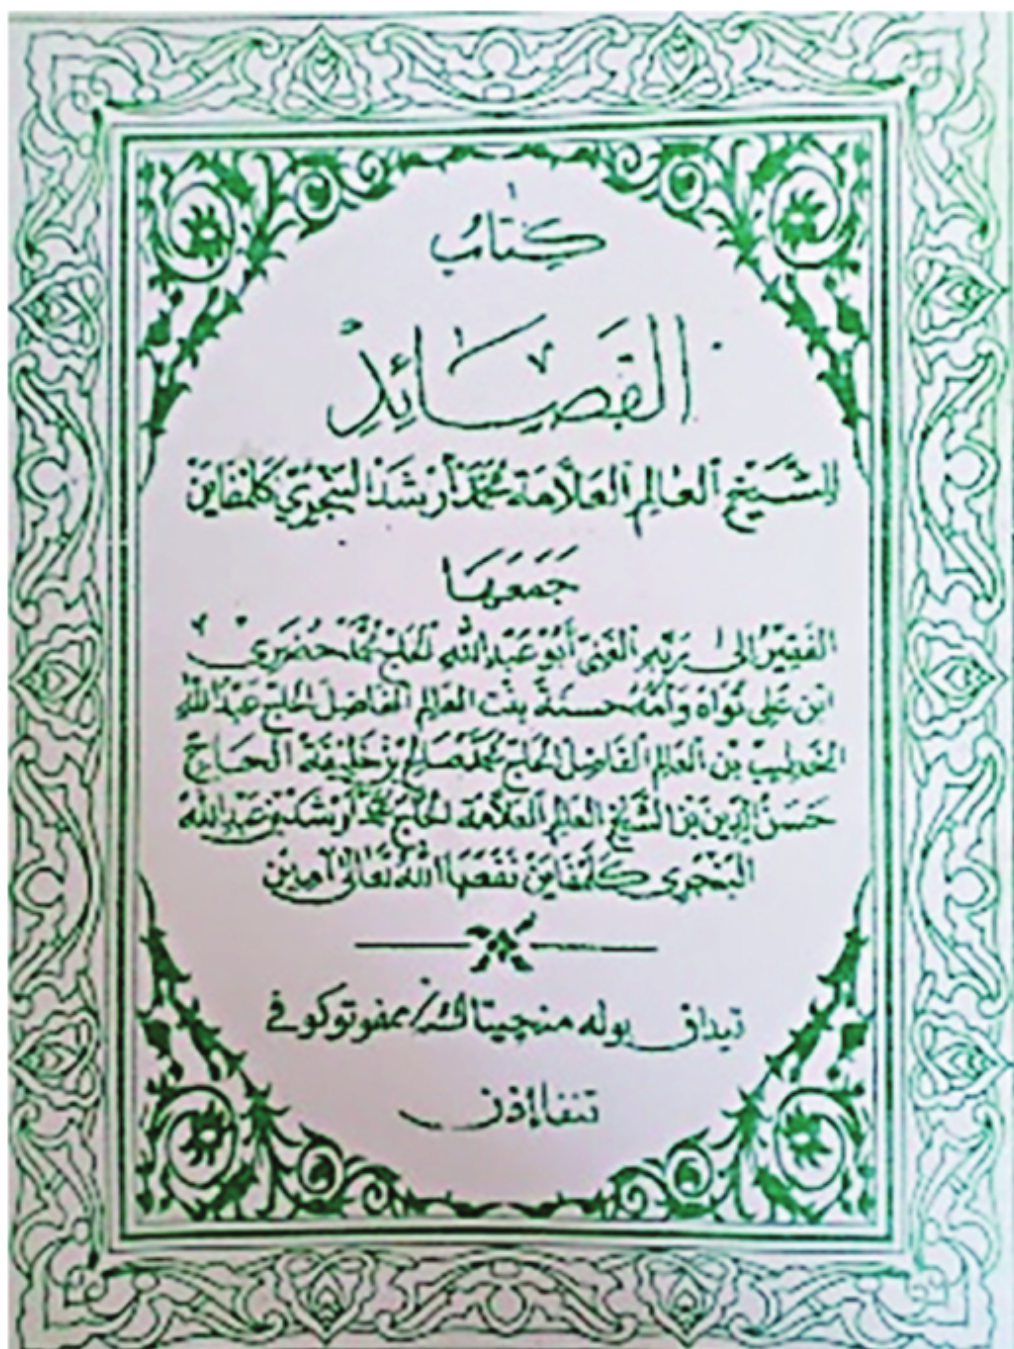 كِتَابُ
القَصَائِدِ
للشَّيْخِ العَالِمِ العَلَّامَة مُحَمَّد أَرْشَد البَنْجَرِيِّ كَلَمْفَايَنْ
جَمَعَهَا
الفَقِيْرُ إِلَى رَبِّهِ الغَنِيِّ أَبُوْ عَبْدِ اللهِ الحَاج مُحَمَّد
ابن عَلِى نُوَاه وَأُمُّهُ حسنة بِنْت العَالِم الفَاضِل الحَاج عَبْدُ اللهِ
الخَطِيب بن العَالِم الفَاضِل الحَاج مُحَمَّد صَالِح بْن خَلِيْفَة الحَاج
حَسَنُ الدِّين بن الشَّيْخ العَالِم العَلَّامَة الحَاج مُحَمَّد أَرْشَد بْن عَبْدِ اللهِ
البَنْجَرِى كَلَمْفَايَنْ نَفَعَهَا اللهُ تَعَالَى آمِيْن
تيداق بوله منچيتاك / مڠفوتوكوفي
تنفا إذن